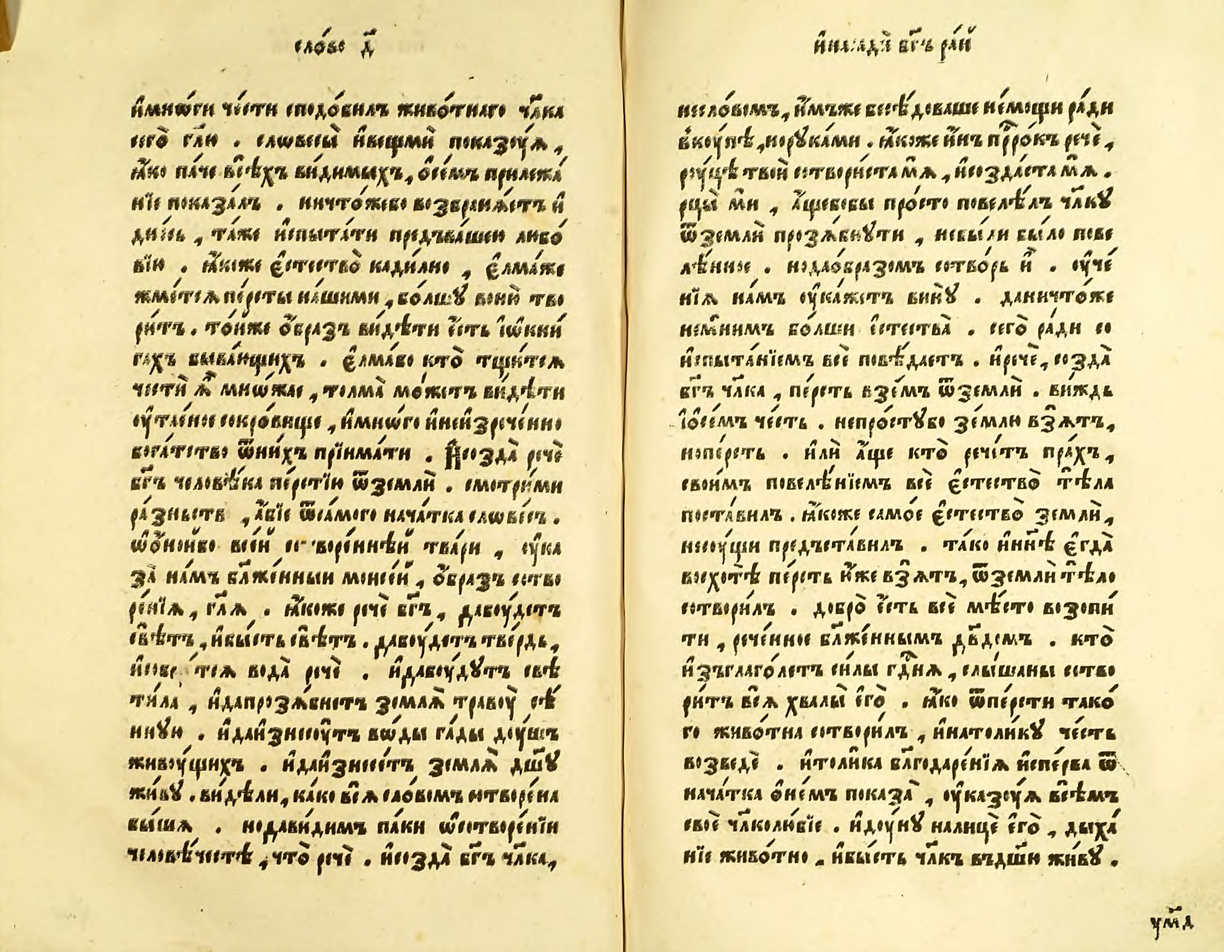 сло́во д҃
и҆мно́ги че́сти сподо́билъ живо́тнаго чл҃ка
сего̀ гл҃ю . словесы̀ и҆вещмѝ показꙋ́ѧ ,
ꙗ҆́ко па́че всѣ́хъ ви́димыхъ , ѻ҆се́мъ прилежа́
нїе показа́лъ . ничто́жебо возбранѧ́етъ и҆
ди́нь , та́же и҆спыта́ти предъва́шею любо́
вїю . ꙗ҆́коже є҆стество̀ кади́лно , є҆лма́же
жме́тсѧ пе́рсты на́шими , бо́лшꙋ воню̀ тво
ри́тъ . то́йже ѻ҆́бразъ ви́дѣти є҆́сть і҆ѡ҆кни́
гахъ быва́ющихъ . є҆лма́бо кто̀ тщи́тсѧ
честѝ ꙗ҆̀ мно́жае , толма̀ мо́жетъ ви́дѣти
ᲂу҆тае́ное сокро́вище , и҆мно́го и҆неи҆зрече́нно
бога́тство ѿни́хъ прїима́ти . И҆созда̀ речѐ
бг҃ъ человѣ́ка пе́рстїю ѿземлѝ . смотри́ми
ра́зньств , а҆́бїе ѿса́мого нача́тка слове́съ .
ѡ҆ѻ҆но́йбо все́й сотворе́ннѣй тва́ри , ᲂу҆ка
за̀ на́мъ бл҃же́нныи моисе́й , ѻ҆́бразъ сотво
ре́нїѧ , гл҃ѧ . ꙗ҆́коже речѐ бг҃ъ , дабꙋ́детъ
свѣ́тъ , и҆бы́сть свѣ́тъ . дабꙋ́детъ тве́рдь ,
и҆собере́тсѧ вода̀ речѐ . и҆дабꙋ́дꙋтъ свѣ
ти́ла , и҆дапрозѧ́бнетъ землѧ̀ травꙋ̀ сѣ́
ннꙋю . и҆даи҆знесꙋ́тъ во́ды га́ды дꙋ́шъ
живꙋ́щихъ . и҆даи҆знесе́тъ землѧ̀ дш҃ꙋ
жи́вꙋ . ви́дѣли , ка́ко всѧ̀ сло́вомъ сотворе́на
бы́шѧ . нода́видимъ па́ки ѡ҆сотворе́нїи
человѣ́честѣ , что̀ речѐ . и҆созда̀ бг҃ъ чл҃ка ,
и҆насадѝ бг҃ъ ра́й
несло́вомъ , и҆́мъже бесѣ́доваше не́мощи ра́ди
вкꙋ́пѣ , норꙋка́ми . ꙗ҆́коже и҆́нъ прⷪ҇ро́къ речѐ ,
рꙋ́цѣ твоѝ сотвори́стамѧ , и҆созда́стамѧ .
рцы̀ мѝ , а҆́щебобы про́сто повелѣ́лъ чл҃кꙋ
ѿземлѝ прозѧ́бнꙋти , небы́ли бы́ло пове
лѣ́нное . нодао҆́бразомъ сотво́рь и҆̀ . ᲂу҆че́
нїѧ на́мъ ᲂу҆ка́жетъ винꙋ̀ . даничто́же
не́мнимъ бо́лши є҆стества̀ . сего̀ ра́ди со
и҆спыта́нїемъ всѐ повѣ́даетъ . и҆речѐ , созда̀
бг҃ъ чл҃ка , пе́рсть взе́мъ ѿземлѝ . виждь
і҆ѻ҆се́мъ че́сть . непро́стꙋбо зе́млю взѧ́тъ ,
нопе́рсть . и҆лѝ а҆́ще кто̀ рече́тъ пра́хъ ,
свои́мъ повелѣ́нїемъ всѐ є҆стество̀ тѣ́ла
поста́вилъ . ꙗ҆́коже само́е є҆стество̀ землѝ ,
несꙋ́щи предъста́вилъ . та́ко и҆нн҃ѣ є҆гда̀
восхотѣ̀ пе́рсть и҆́же взѧ́тъ , ѿземлѝ тѣ́ло
сотвори́лъ . добро̀ є҆́сть всѐ мѣ́сто возопи́
ти , рече́нное бл҃же́ннымъ дв҃дмъ . кто̀
и҆зъглаго́летъ си́лы гдⷭ҇нѧ , слы́шаны сотво
ри́тъ всѧ̀ хвалы̀ є҆го̀ . ꙗ҆́ко ѿпе́рсти тако́
го живо́тна сотвори́лъ , и҆натоли́кꙋ че́сть
возведѐ . и҆толи́ка бл҃годаре́нїѧ и҆спе́рва ѿ
нача́тка ѻ҆не́мъ показа̀ , ᲂу҆казꙋ́ѧ всѣ́мъ
своѐ чл҃колю́бїе . и҆дꙋ́нꙋ налицѐ є҆го̀ , дыха́
нїе живо́тно . и҆бы́сть чл҃къ въдш҃ꙋ жи́вꙋ .
ум҃д